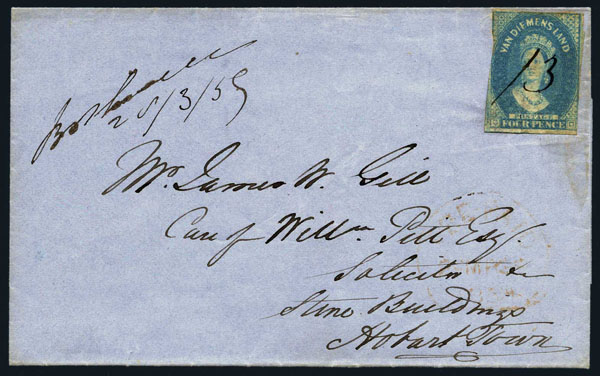 VAN DIEMENS LAND
13
POSTAGE
FOUR PENCE
28/3/59
Mr. James W. Gill
Care of Willm Pitt Esq.
Solicitor &c
Stone Buildings
Hobart Town